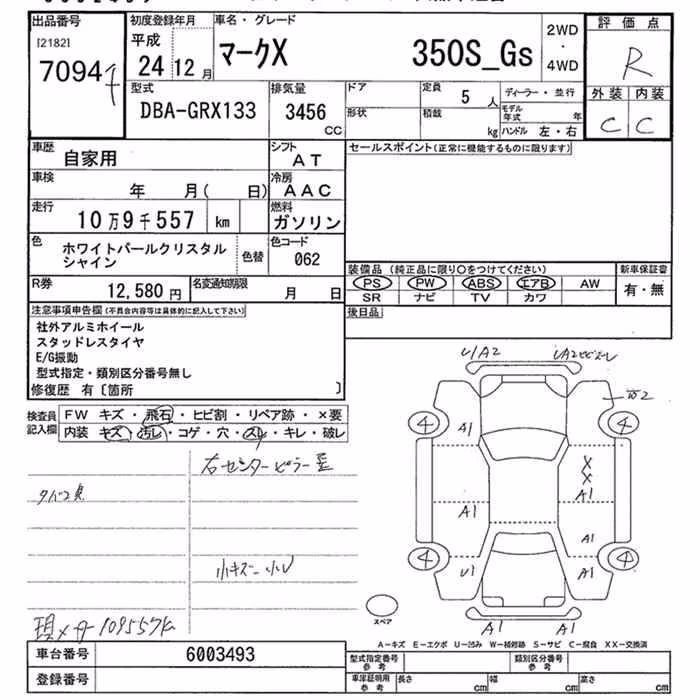 出品番号
[2182]
7094
初度登録年月
平成
24年12月
車名・グレード
マークX 350S_Gs
2WD
・
4WD
評価点
R
外装 内装
C C
型式
DBA-GRX133
排気量
3456
CC
ドア
形状
定員
5人
積載
kg
ディーラー・並行
モデル年式 年
ハンドル 左・右
車歴
自家用
シフト
AT
車検
年 月( 日)
冷房
AAC
走行
10万9千557 km
燃料
ガソリン
色
ホワイトパールクリスタル
シャイン
色替
色コード
062
R券
12,580円
名変通知期限
月 日
セールスポイント(正常に機能するものに限ります)
装備品 (純正品に限り〇をつけてください)
PS PW ABS エアB AW
SR ナビ TV カワ
新車保証書
有・無
後日品
注意事項申告欄(不具合内容等は具体的に記入して下さい)
社外アルミホイール
スタッドレスタイヤ
E/G振動
型式指定・類別区分番号無し
修復歴 有〔箇所 〕
検査員
記入欄
FW キズ・飛石・ヒビ割・リペア跡・×要
内装 キズ・汚レ・コゲ・穴・スレ・キレ・破レ
右センターピラー歪
タバコ臭
小キズ 小U
現メーター109557k
U/A2
4
A1
W2
4
X
X
A1
A1
A1
4
U1
A1
4
A1
A1
スペア
A-キズ E-エクボ U-凹み W-補修跡 S-サビ C-腐食 XX-交換済
車台番号 6003493
登録番号
型式指定番号
参考
類別区分番号
参考
車庫証明用
参考
長さ cm
幅 cm
高さ cm